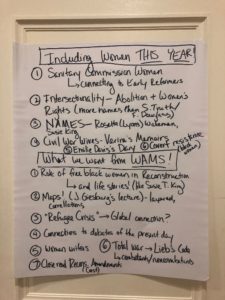 Including Women THIS YEAR!
① Sanitary Commission Women
↳ Connecting to Early Reformers
② Intersectionality - Abolition + Women's
Rights (more names than S. Truth/
F. Douglass)
③ NAMES - Rosetta (Lyons) Wakeman,
Susie King
④ Civil War Wives - Varina's Memoirs
⑤ Emilie Davis's Diary ⑥ Covert resistance
What we want from WAMS!
① Role of free black women in Reconstruction
↳ and life stories! (like Susie T. King)
② Maps! (J. Giesburg's lecture) - layered,
correlations
③ "Refugee Crisis" → Global connection?
④ Connections to debates of the present day
⑤ Women writers ⑥ Total War → Lieb's Code
↳ combatants/noncombatants
⑦ Close read Primary Amendments
(Const)